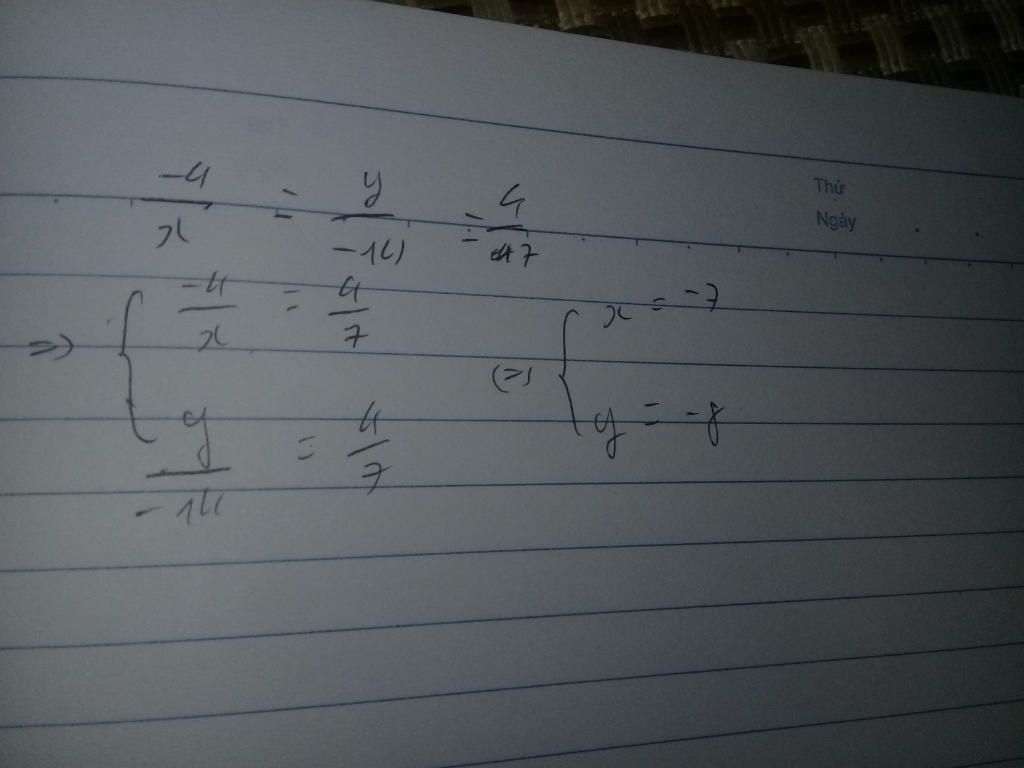 Thứ
Ngày
-4/x = y/-14 = 4/7
=> { -4/x = 4/7 (=) { x = -7
y/-14 = 4/7 y = -8